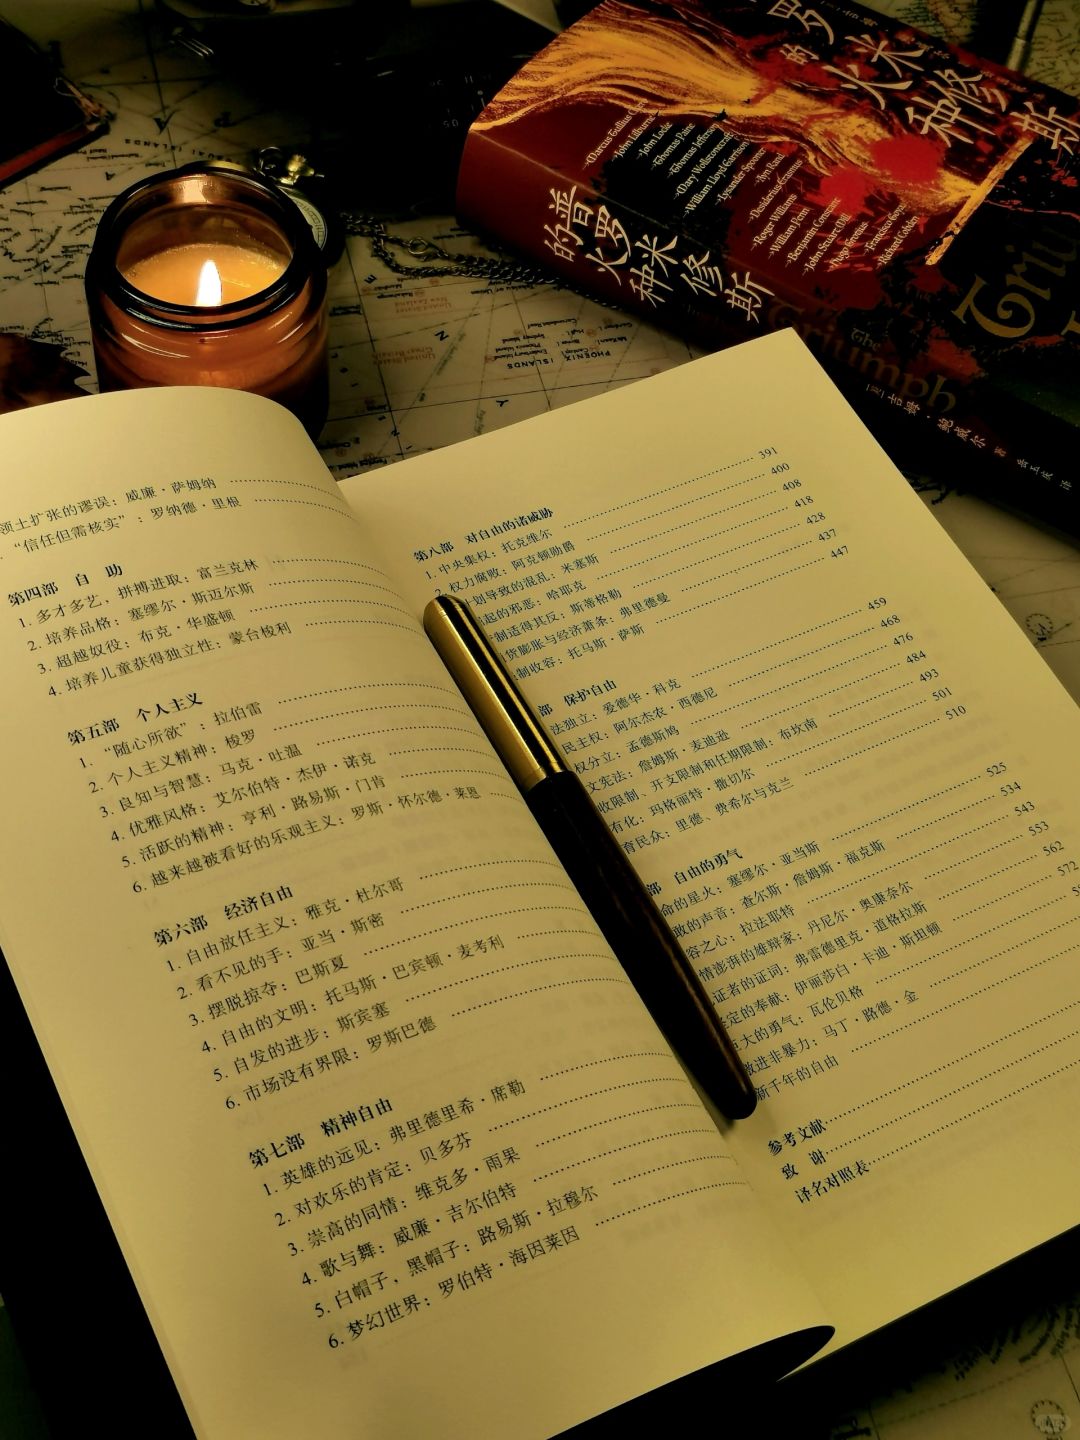 领土扩张的谬误：威廉·萨姆纳
“信任但需核实”：罗纳德·里根
第四部 自 助
1. 多才多艺，拼搏进取：富兰克林
2. 培养品格：塞缪尔·斯迈尔斯
3. 超越奴役：布克·华盛顿
4. 培养儿童获得独立性：蒙台梭利
第五部 个人主义
1. “随心所欲”：拉伯雷
2. 个人主义精神：梭罗
3. 良知与智慧：马克·吐温
4. 优雅风格：艾尔伯特·杰伊·诺克
5. 活跃的精神：亨利·路易斯·门肯
6. 越来越被看好的乐观主义：罗斯·怀尔德·莱恩
第六部 经济自由
1. 自由放任主义：雅克·杜尔哥
2. 看不见的手：亚当·斯密
3. 摆脱掠夺：巴斯夏
4. 自由的文明：托马斯·巴宾顿·麦考利
5. 自发的进步：斯宾塞
6. 市场没有界限：罗斯巴德
第七部 精神自由
1. 英雄的远见：弗里德里希·席勒
2. 对欢乐的肯定：贝多芬
3. 崇高的同情：维克多·雨果
4. 歌与舞：威廉·吉尔伯特
5. 白帽子，黑帽子：路易斯·拉穆尔
6. 梦幻世界：罗伯特·海因莱因
第八部 对自由的诸威胁
1. 中央集权：托克维尔 391
2. 权力腐败：阿克顿勋爵 400
划导致的混乱：米塞斯 408
起的邪恶：哈耶克 418
制适得其反：斯蒂格勒 428
货膨胀与经济萧条：弗里德曼 437
制收容：托马斯·萨斯 447
部 保护自由
法独立：爱德华·科克 459
民主权：阿尔杰农·西德尼 468
权分立：孟德斯鸠 476
文宪法：詹姆斯·麦迪逊 484
收限制、开支限制和任期限制：布坎南 493
有化：玛格丽特·撒切尔 501
育民众：里德、费希尔与克兰 510
部 自由的勇气
命的星火：塞缪尔·亚当斯 525
敢的声音：查尔斯·詹姆斯·福克斯 534
容之心：拉法耶特 543
情澎湃的雄辩家：丹尼尔·奥康奈尔 553
证者的证词：弗雷德里克·道格拉斯 562
定的奉献：伊丽莎白·卡迪·斯坦顿 572
巨大的勇气：瓦伦贝格
激进非暴力：马丁·路德·金
新千年的自由
参考文献
致 谢
译名对照表
罗米修斯
的火种
John Lilburne
John Locke
Thomas Paine
Thomas Jefferson
Mary Wollstonecraft
William Lloyd Garrison
Lysander Spooner
Ayn Rand
Desiderius Erasmus
Roger Williams
William Penn
Benjamin Constant
John Stuart Mill
Hugo Grotius
Francisco Goya
普罗米修斯
的火种
The
Triumph
[美] 吉姆·鲍威尔 著
译
PHOENIX
ISLANDS